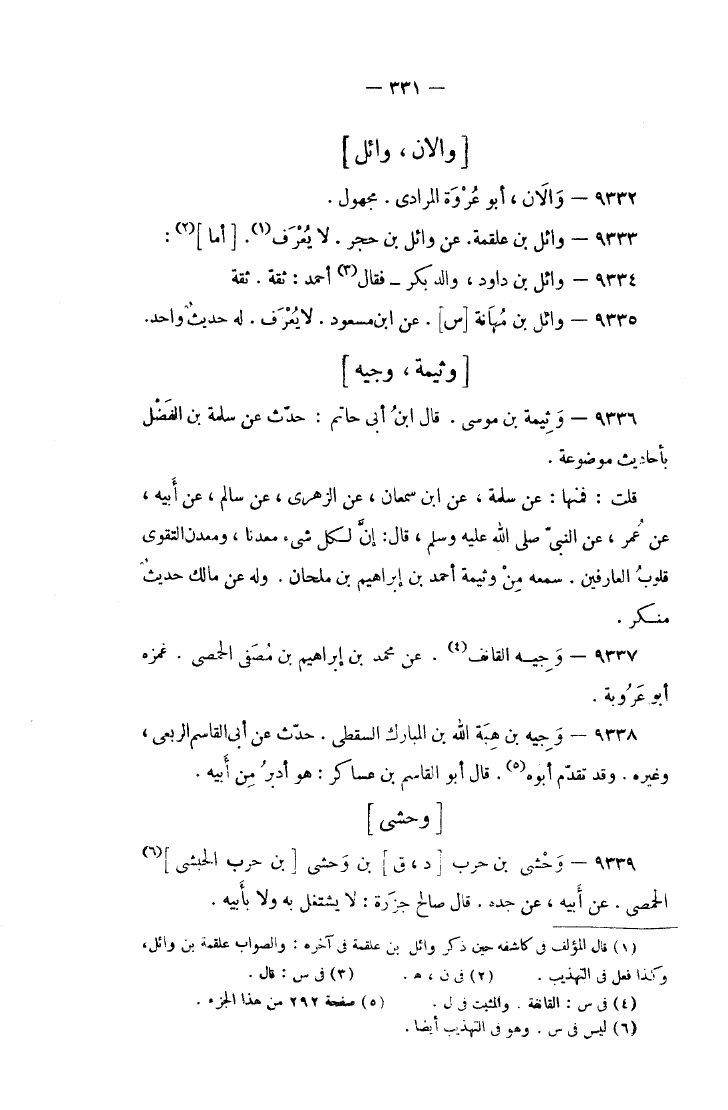 — ٣٣١ —
[ والان ، وائل ]
٩٣٣٢ — وَالَان ، أبو عُرْوَة المرادى . مجهول .
٩٣٣٣ — وائل بن علقمة. عن وائل بن حجر . لا يُعْرَف(١). [ أما ](٢) :
٩٣٣٤ — وائل بن داود ، والد بكر – فقال(٣) أحمد : ثقة . ثقة
٩٣٣٥ — وائل بن مُهَانة [س] . عن ابن مسعود . لا يُعْرَف . له حديثٌ واحد.
[ وثيمة ، وجيه ]
٩٣٣٦ — وَثِيمة بن موسى . قال ابنُ أبى حاتم : حدّث عن سلمة بن الفَضْل
بأحاديث موضوعة .
قلت : فمنها : عن سلمة ، عن ابن سمعان ، عن الزهرى ، عن سالم ، عن أَبيه ،
عن عُمر ، عن النبيّ صلى الله عليه وسلم ، قال: إنَّ لكل شىء معدنا ، ومعدن التقوى
قلوبُ العارفين . سمعه مِنْ وثيمة أحمد بن إبراهيم بن ملحان . وله عن مالك حديثٌ
منكر .
٩٣٣٧ — وَجيه القانف(٤) . عن محمد بن إبراهيم بن مُصَفى الحمصى . غمزه
أبو عَرُوبة .
٩٣٣٨ — وَجيه بن هِبَة الله بن المبارك السقطى . حدّث عن أبى القاسم الربعى ،
وغيره . وقد تقدّم أبوه(٥) . قال أبو القاسم بن عساكر : هو أدبرُ مِن أَبيه .
[ وحشى ]
٩٣٣٩ — وَحْشى بن حرب [ د ، ق ] بن وَحشى [ بن حرب الحبشى ](٦)
الحمصى . عن أَبيه ، عن جده . قال صالح جزَرة : لا يشتغل به ولا بأبيه .
(١) قال المؤلف فى كاشفه حين ذكر وائل بن علقمة فى آخره : والصواب علقمة بن وائل،
وكذا فعل فى التهذيب . (٢) فى ن ، ه . (٣) فى س : قال .
(٤) فى س : القانفة . والمثبت فى ل . (٥) صفحة ٢٩٢ من هذا الجزء .
(٦) ليس فى س . وهو فى التهذيب أيضا .